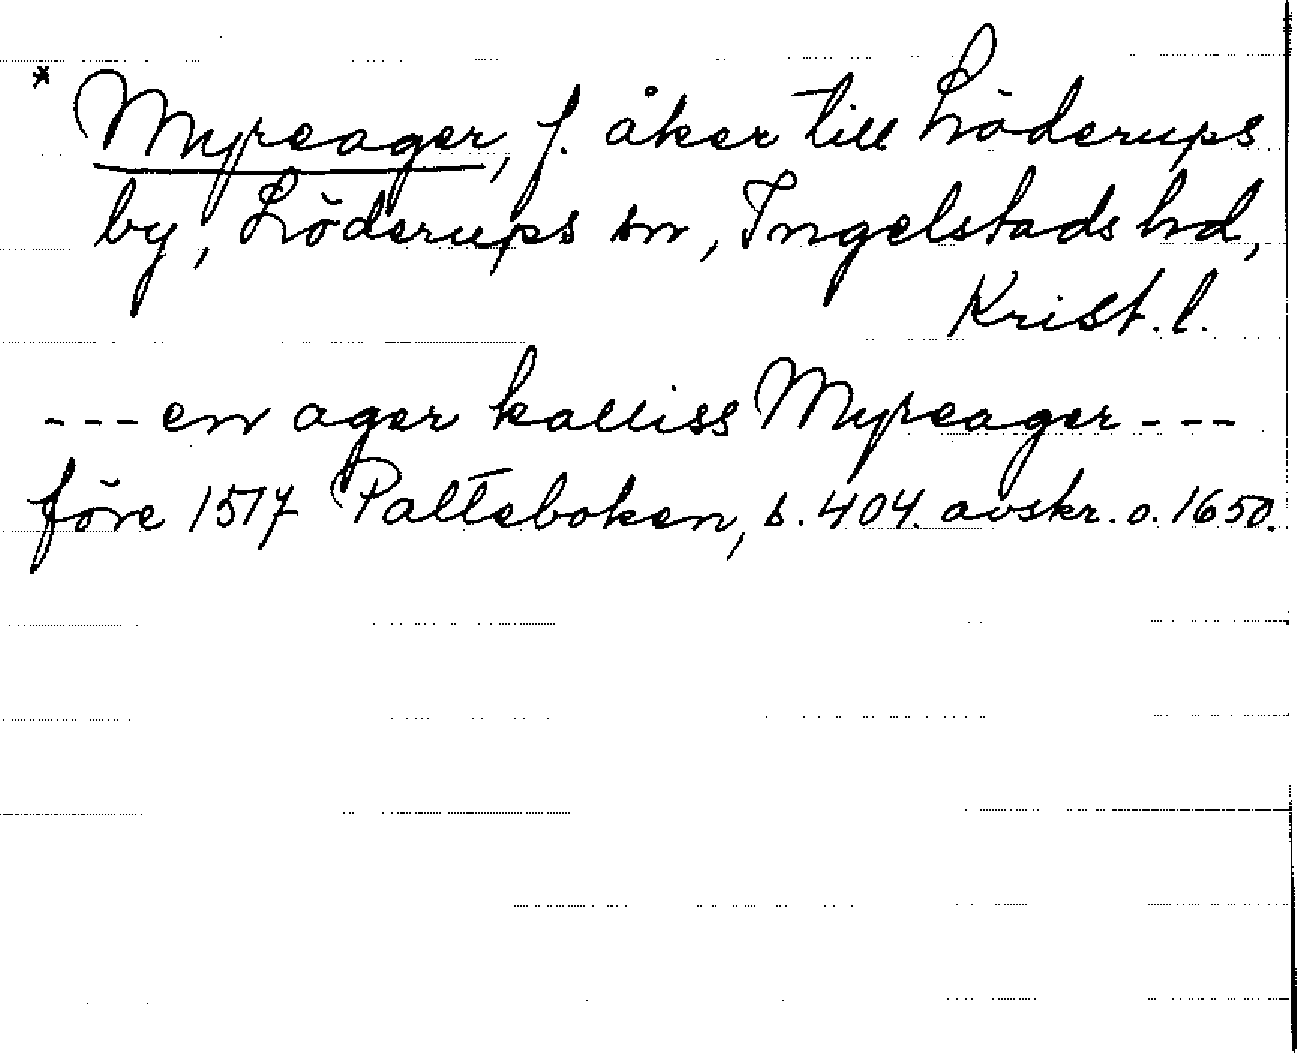 * Myreager, f. åker till Löderups
by, Löderups sn, Ingelstads hd,
Krist. l.
--- en ager kalliss Myreager ---
före 1517 Palteboken, s. 404. avskr. o. 1650.